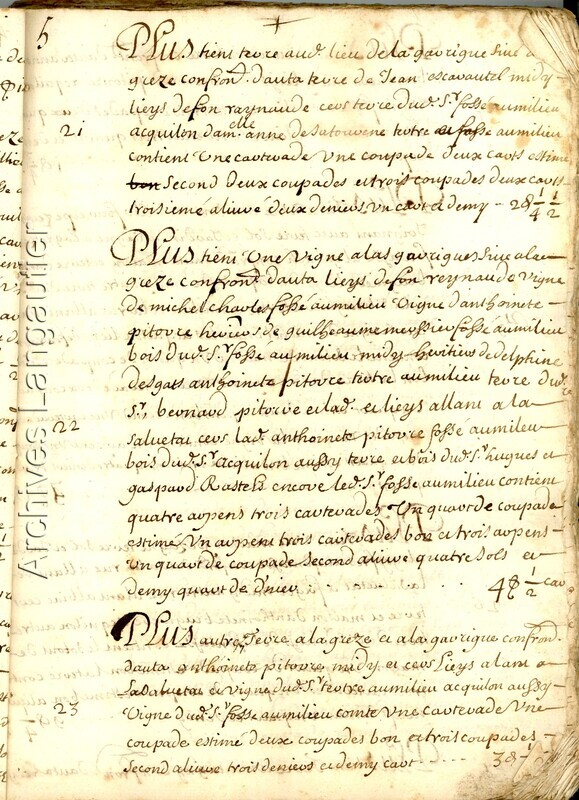 5
PLus tient terre aud. lieu de la garrigue sive a
greze confrond. dauta terre de Jean escavautel midy
lieys de fon raynaude cers terre dud. Sr. fossé au milieu
21
acquilon damelle anne de terre au milieu
contient Une carterade Une coupade deux carts estimé
Second deux coupades et trois coupades deux carts
troisieme alivré deux deniers Un cart et demy
PLus tient Une Vigne a las garrigues sive a la
greze confrond. dauta lieys de fon reynaude Vigne
de michel Charles fossé au milieu Vigne danthoinete
pitorre heritiers de guilheaume fosse au milieu
bois dud. Sr. fosse au milieu midy heritiers de delphine
desgats anthoinete pitorre tertre au milieu terre dud.
Sr. bernard pitorre et lad. et lieys allant a la
22
Salvetat cers lad. anthoinete pitorre fossé au milieu
bois dud. Sr. acquilon aussy terre et bois dud. Sr. hugues et
gaspard Rastels encore led. Sr. fosse au milieu contient
quatre arpens trois carterades Un quart de coupade
estimé Un arpent trois carterades bon et trois arpens
Un quart de coupade Second alivré quatre Sols et
demy quart de d'nier
PLUS autre Terre a la greze et a la garrigue confrond.
dauta anthoinete pitorre midy et cers Lieys alant a
La Salvetat et Vigne dud. Sr. tertre au milieu acquilon aussy
23
Vigne dud. Sr. fosse au milieu contt. Une carterade Une
coupade estimé deux coupades bon et trois coupades
Second alivré trois deniers et demy cart
Archives Langautier